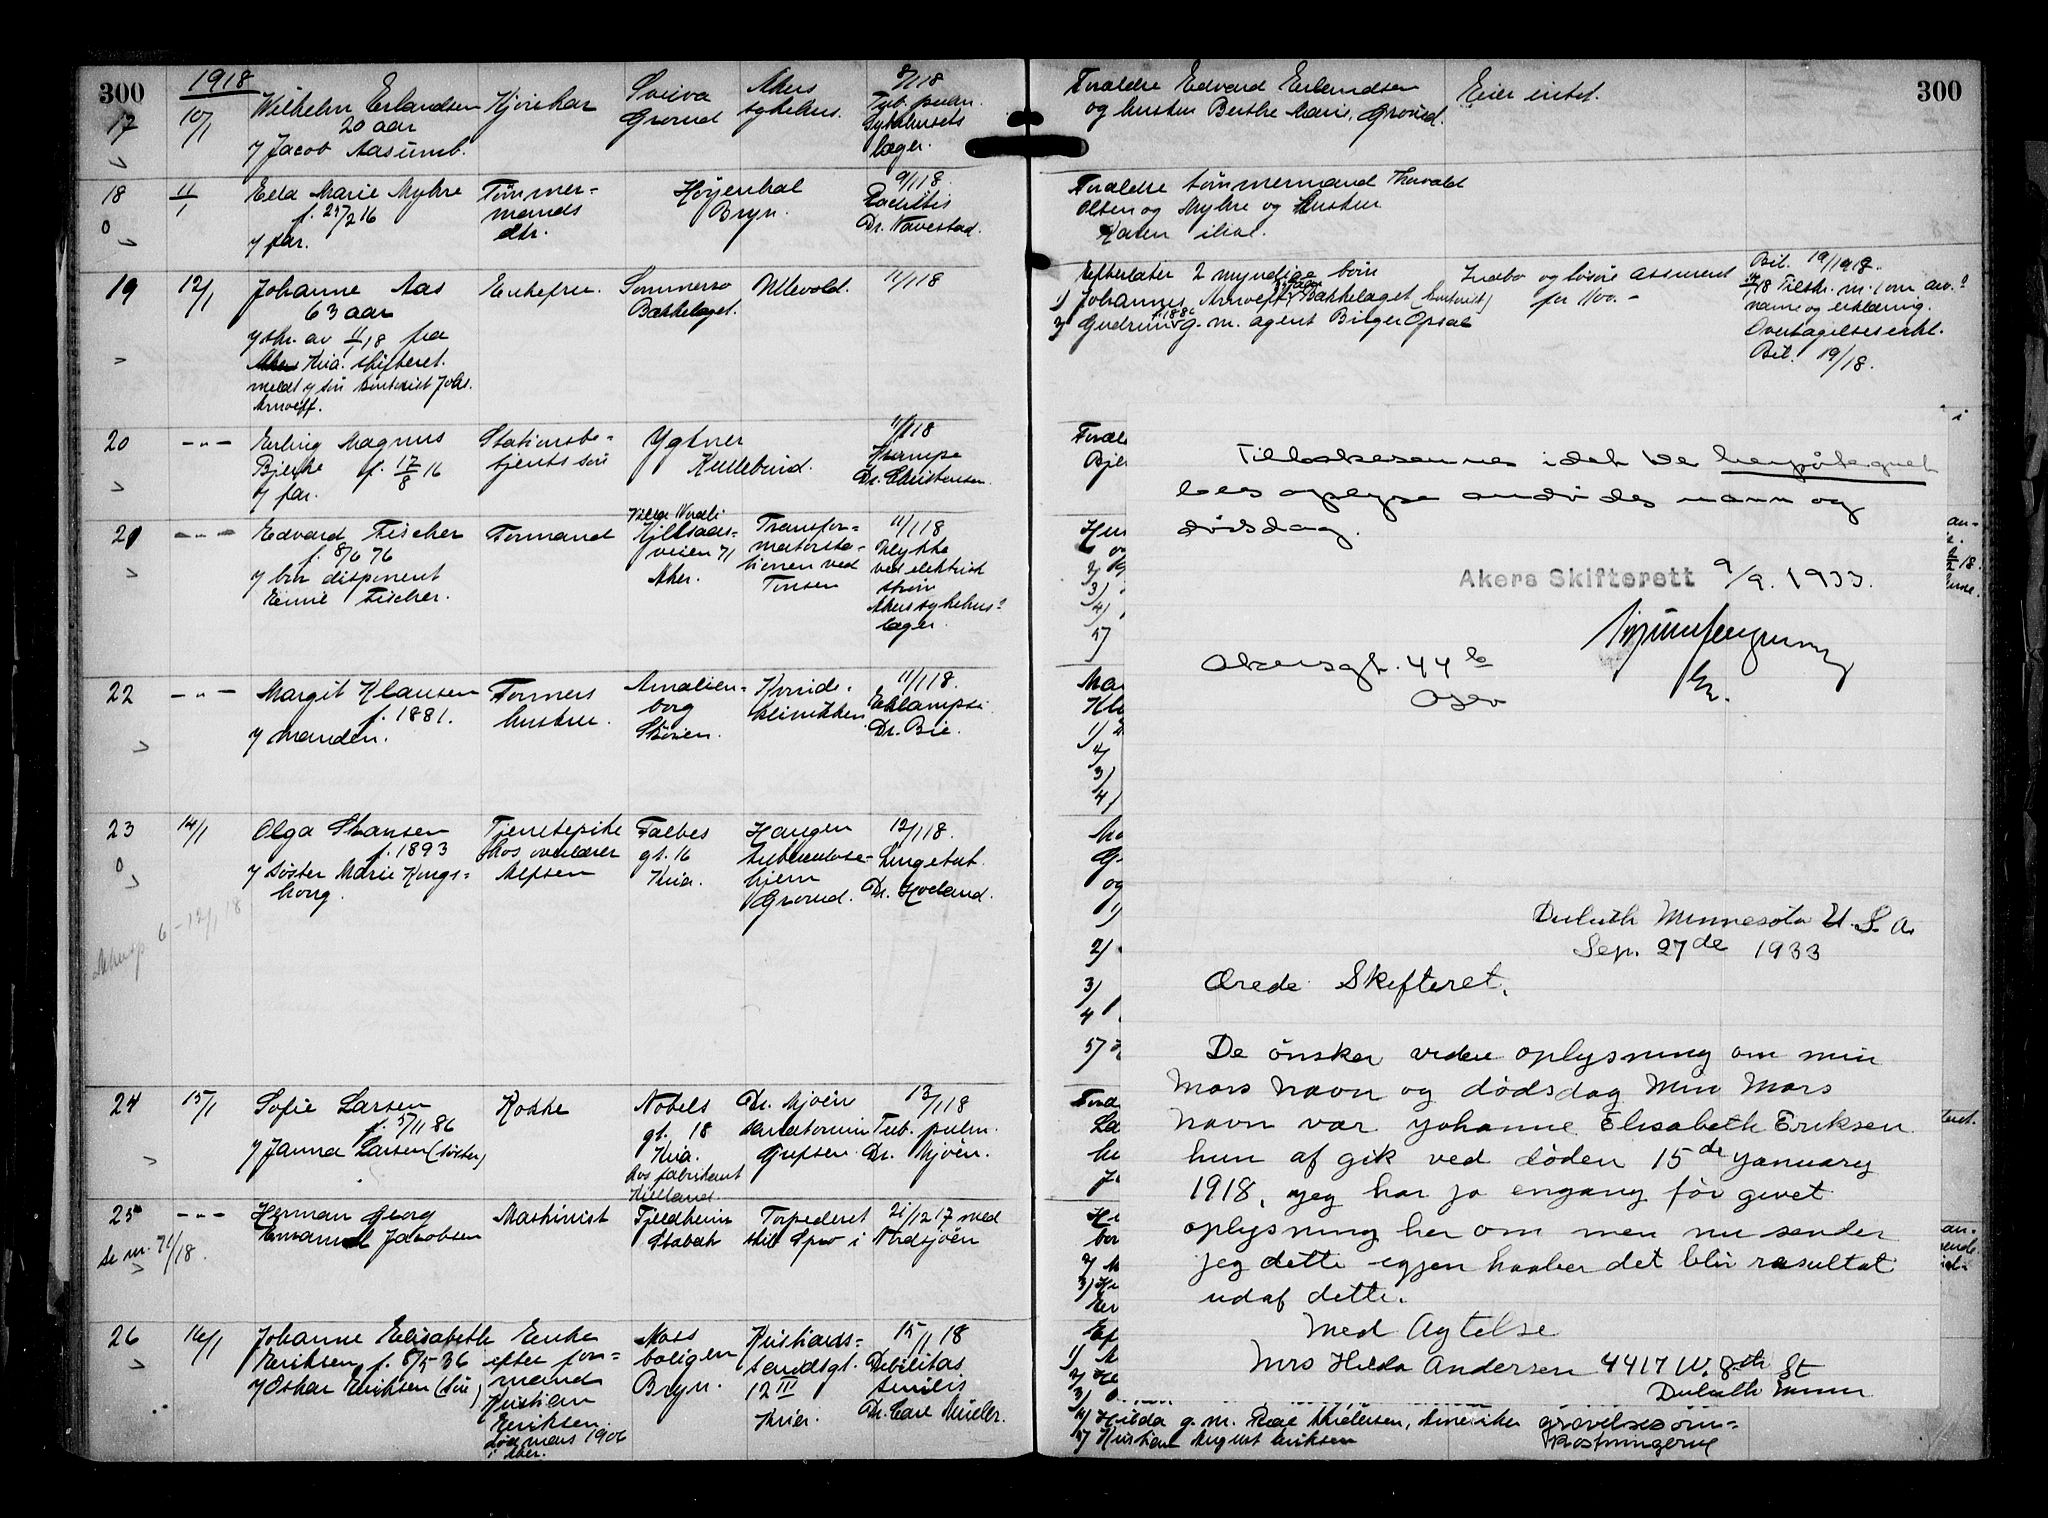 300
1918
17
10/1
Wilhelm Erlandsen
20 aar
Grorud
Akers
sykehus.
8/1 18
Tub. pulm.
Sykehusets
læger.
18
11/1
Myhre
f. 25/2 16
v/ far.
Tømmer-
mands
dtr.
Høyenhal
Bryn.
9/1 18
Rachitis
Dr. Navestad.
19
12/1
Johanne Aas
63 aar
v/ skr. av 11/1 18 fra
Kria. skifteret.
Enkefru
Bækkelaget.
Ullevold.
11/1 18
20
— " —
Erling Magnus
Bjerke f. 17/8 16
v/ far.
Stationsbe-
tjents søn
11/1 18
Dr. Christensen.
21
— " —
Edvard Fischer
f. 8/6 76
v/ bror disponent
Fischer.
Formand
Kjelsaas-
veien 71
Aker.
Transfor-
matorsta-
tionen ved
Tonsen
11/1 18
Ulykke
ved elektrisk
strøm
Akers sykehus
læger.
22
— " —
Margit Klausen
f. 1881.
v/ manden.
Formers
hustru.
Amalien-
borg
Kvinde-
klinikken
11/1 18.
Eklampsi
Dr. Bie.
23
14/1
Olga Hansen
f. 1893
v/ søster Marie Kongs-
haug.
Tjenestepike
hos overlærer
Alfsen
Falbes
gt. 16
Kria.
Haugen
tuberkulose-
hjem
Grorud.
12/1 18.
Lungetub.
Dr. Hovland.
24
15/1
Sofie Larsen
f. 5/11 86
v/ Janna Larsen (søster)
Kokke
Nobels
gt. 18
Kria.
hos fabrikant
Dr. Mjøen
sanatorium
Grefsen.
13/1 18
Tub. pulm.
Dr. Mjøen.
25
— " —
se nr. 71/18.
Herman Georg
Emanuel Jacobsen
Maskinist
Fjeldheim
Stabæk
Torpederet
i Nordsjøen
21/12 17 med
26
16/1
Johanne Elisabeth
Eriksen f. 8/5 36
v/ Oskar Eriksen (søn)
Enke
efter for-
mand
Kristian
Eriksen
død mars 1906
i Aker.
Moss
boligen
Bryn.
Kristians-
sandsgt.
12 III
Kria.
15/1 18
Debilitas
senilis
Dr. Carl Müller.
300
Forældre Edvard Erlandsen
og hustru Berthe Marie, Grorud.
Eier intet.
Forældre tømmermand Thorvald
Olsen og Myhre og hustru
Karen
Efterlater 2 myndige børn
1) Johannes
2) Gudrun f. 1886 g. m. agent Birger Opsal
Indbo og løsøre assurert
for 1100.-
Bil. 19/1918.
navn og erklæring.
Overtagelseserkl.
Bil. 19/18.
Tilbakesendes idet De herpåtegnet
bes oplyse avdødes navn og
dødsdag.
Akers Skifterett 9/9. 1933.
Akersgt. 44 b
Oslo
Duluth Minnesota U. S. A.
Sep. 27de 1933
Ærede Skifteret.
De ønsker videre oplysning om min
Mors Navn og dødsdag Min Mors
Navn var Johanne Elisabeth Eriksen
hun af gik ved døden 15de January
1918, jeg har jo engang før givet
oplysning her om men nu sender
jeg dette igjen haaber det blir resultat
udaf dette.
Med Agtelse
Mrs Hilda Andersen 4417 W. 8th St
Duluth Minn
4) Hilda g. m. Andersen, Amerika
5) Kristian August Eriksen
gravelsesom-
kostningerne